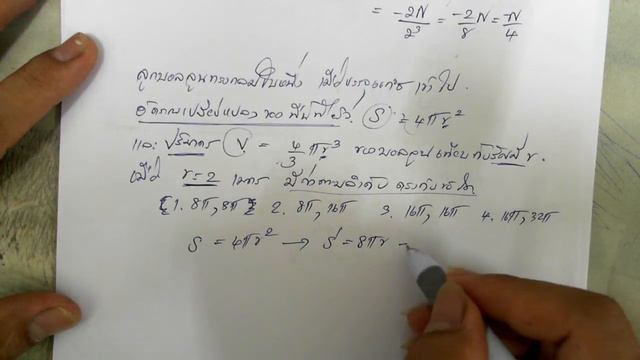 = -2N/2³ = -2/8 N = -N/4
ลูกบอลลูนทรงกลมใบหนึ่ง เมื่อบรรจุแก๊ส เข้าไป
อัตราเปลี่ยนแปลง ของ พื้นที่ผิว S = 4πr²
และ ปริมาตร V = 4/3 πr³ ของบอลลูน เทียบกับรัศมี r
เมื่อ r=2 เมตร มีค่าตามลำดับ ตรงกับข้อใด
1. 8π, 8π 2. 8π, 16π 3. 16π, 16π 4. 16π, 32π
S = 4πr² → S' = 8πr